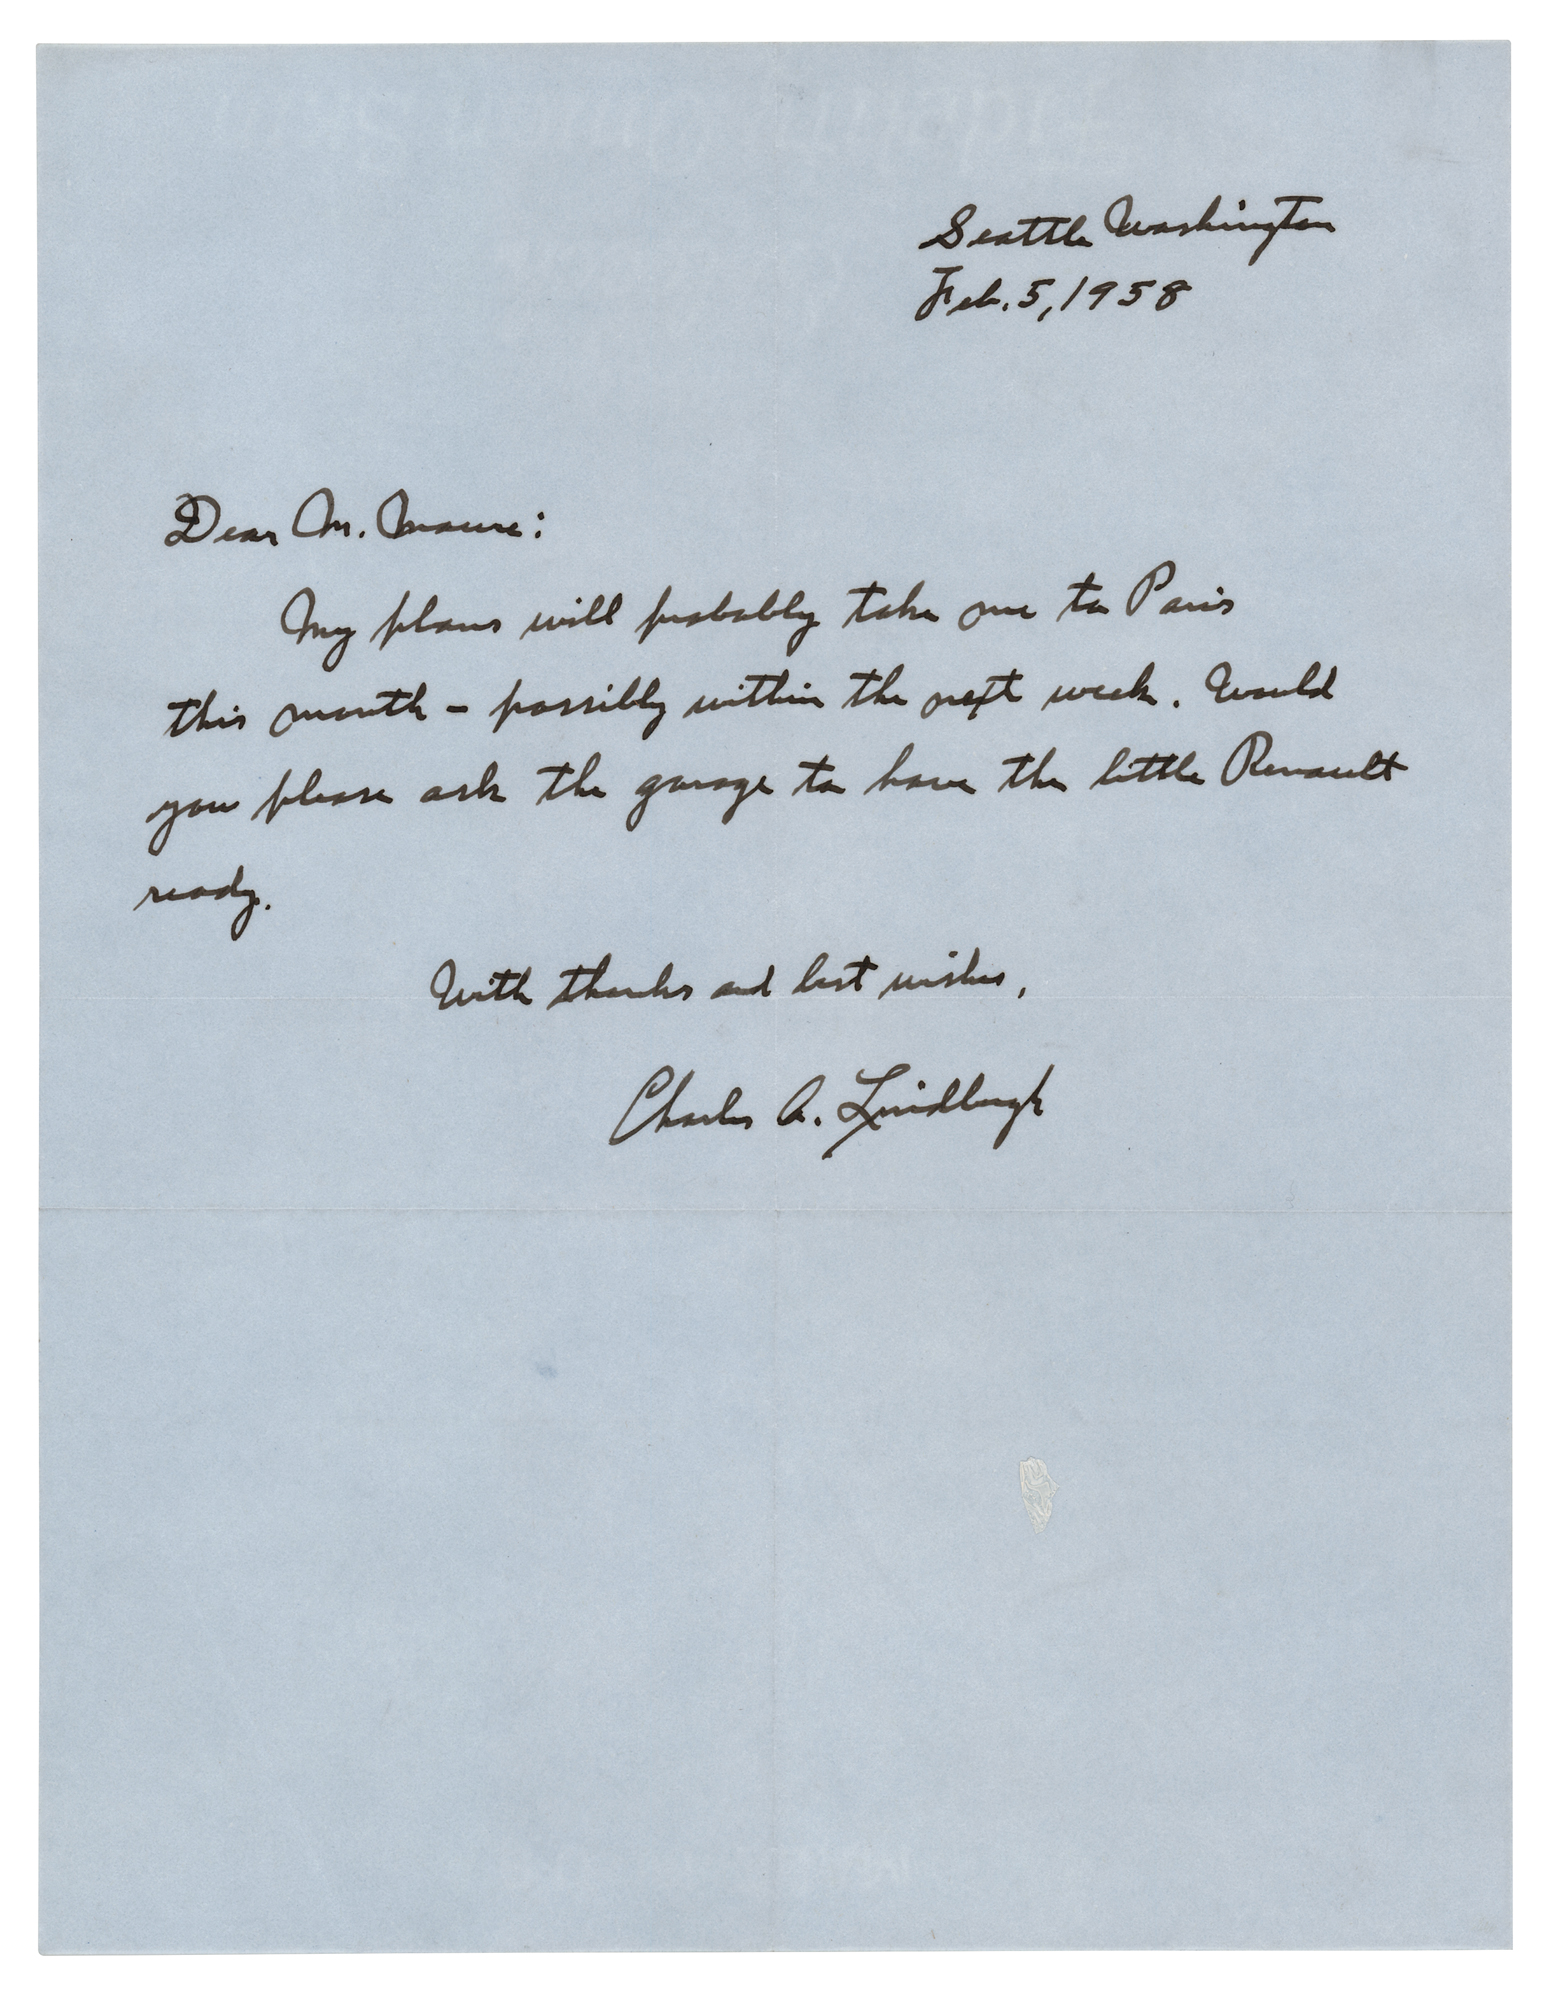 Seattle Washington
Feb. 5, 1958
Dear M.
My plans will probably take me to Paris
this month – possibly within the next week. Would
you please ask the garage to have the little Renault
ready.
With thanks and best wishes,
Charles A. Lindbergh